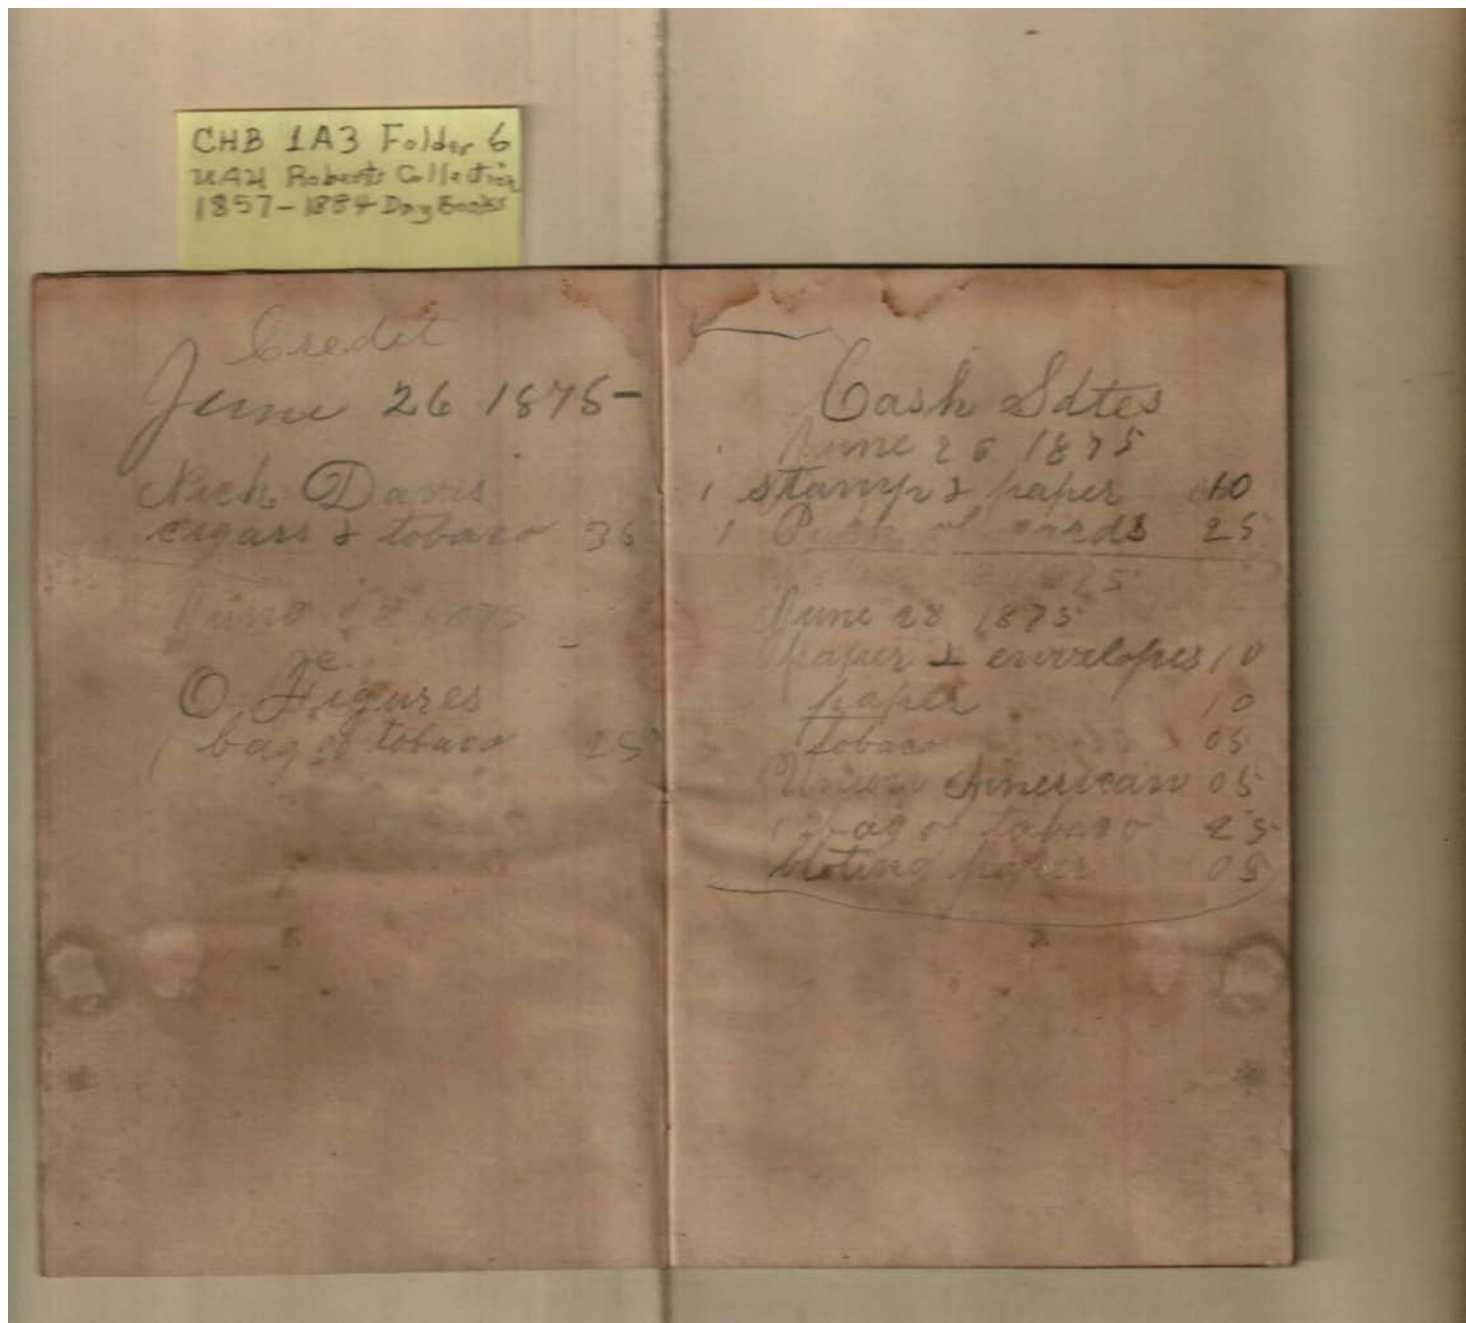 CHB 1A3 Folder 6
UAH Roberts Collection
1857-1884 Day Books
Credit
June 26 1875-
Nick Davis
cigars & tobaco 35
June 28 1875
O Figures
1 bag of tobaco 25
Cash Sdtes
June 26 1875
1 stamp & paper 10
1 Pack of cards 25
June 28 1875
paper & envelopes 10
paper 10
tobaco 05
Union American 05
1 bag of tobaco 25
bloting paper 05